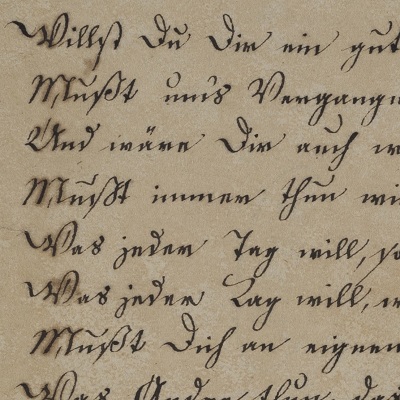 Willst Du Dir ein gut
Mußt um's Vergang
Und wäre Dir auch
Mußt immer thun
Was jeder Tag will, so
Was jeder Tag will,
Mußt Dich an eignem
Was Andre thun, das